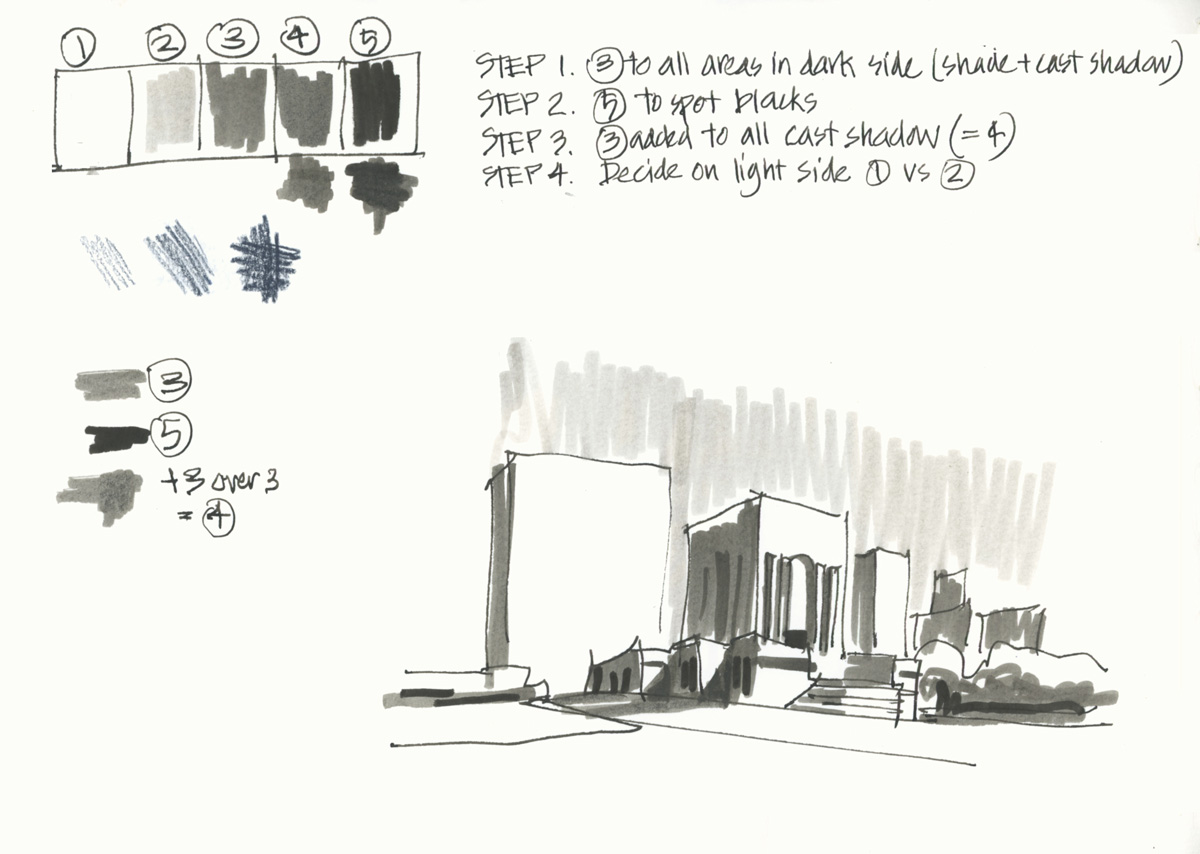 ① ② ③ ④ ⑤
STEP 1. ③ to all areas in dark side (shade + cast shadow)
STEP 2. ⑤ to spot blacks
STEP 3. ③ added to all cast shadow (= 4)
STEP 4. Decide on light side ① vs ②
③
⑤
+3 over 3
= ④